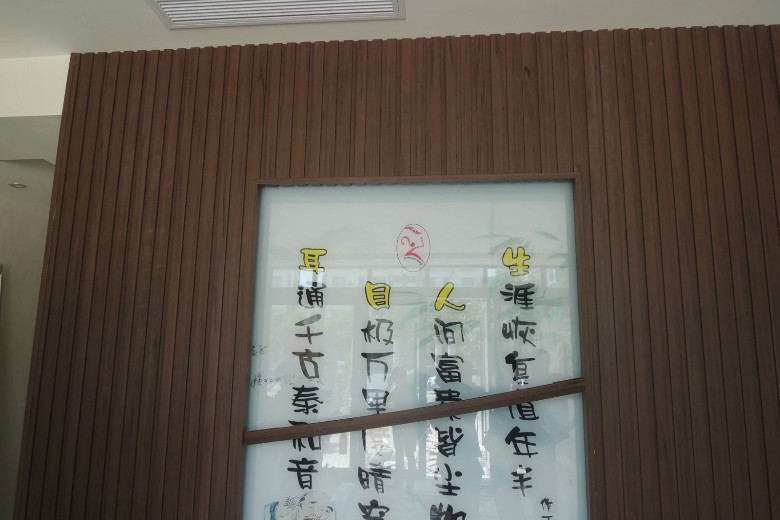 生涯恢复值年丰
人间富贵皆尘物
目极万里晴空
耳通千古泰和音
作